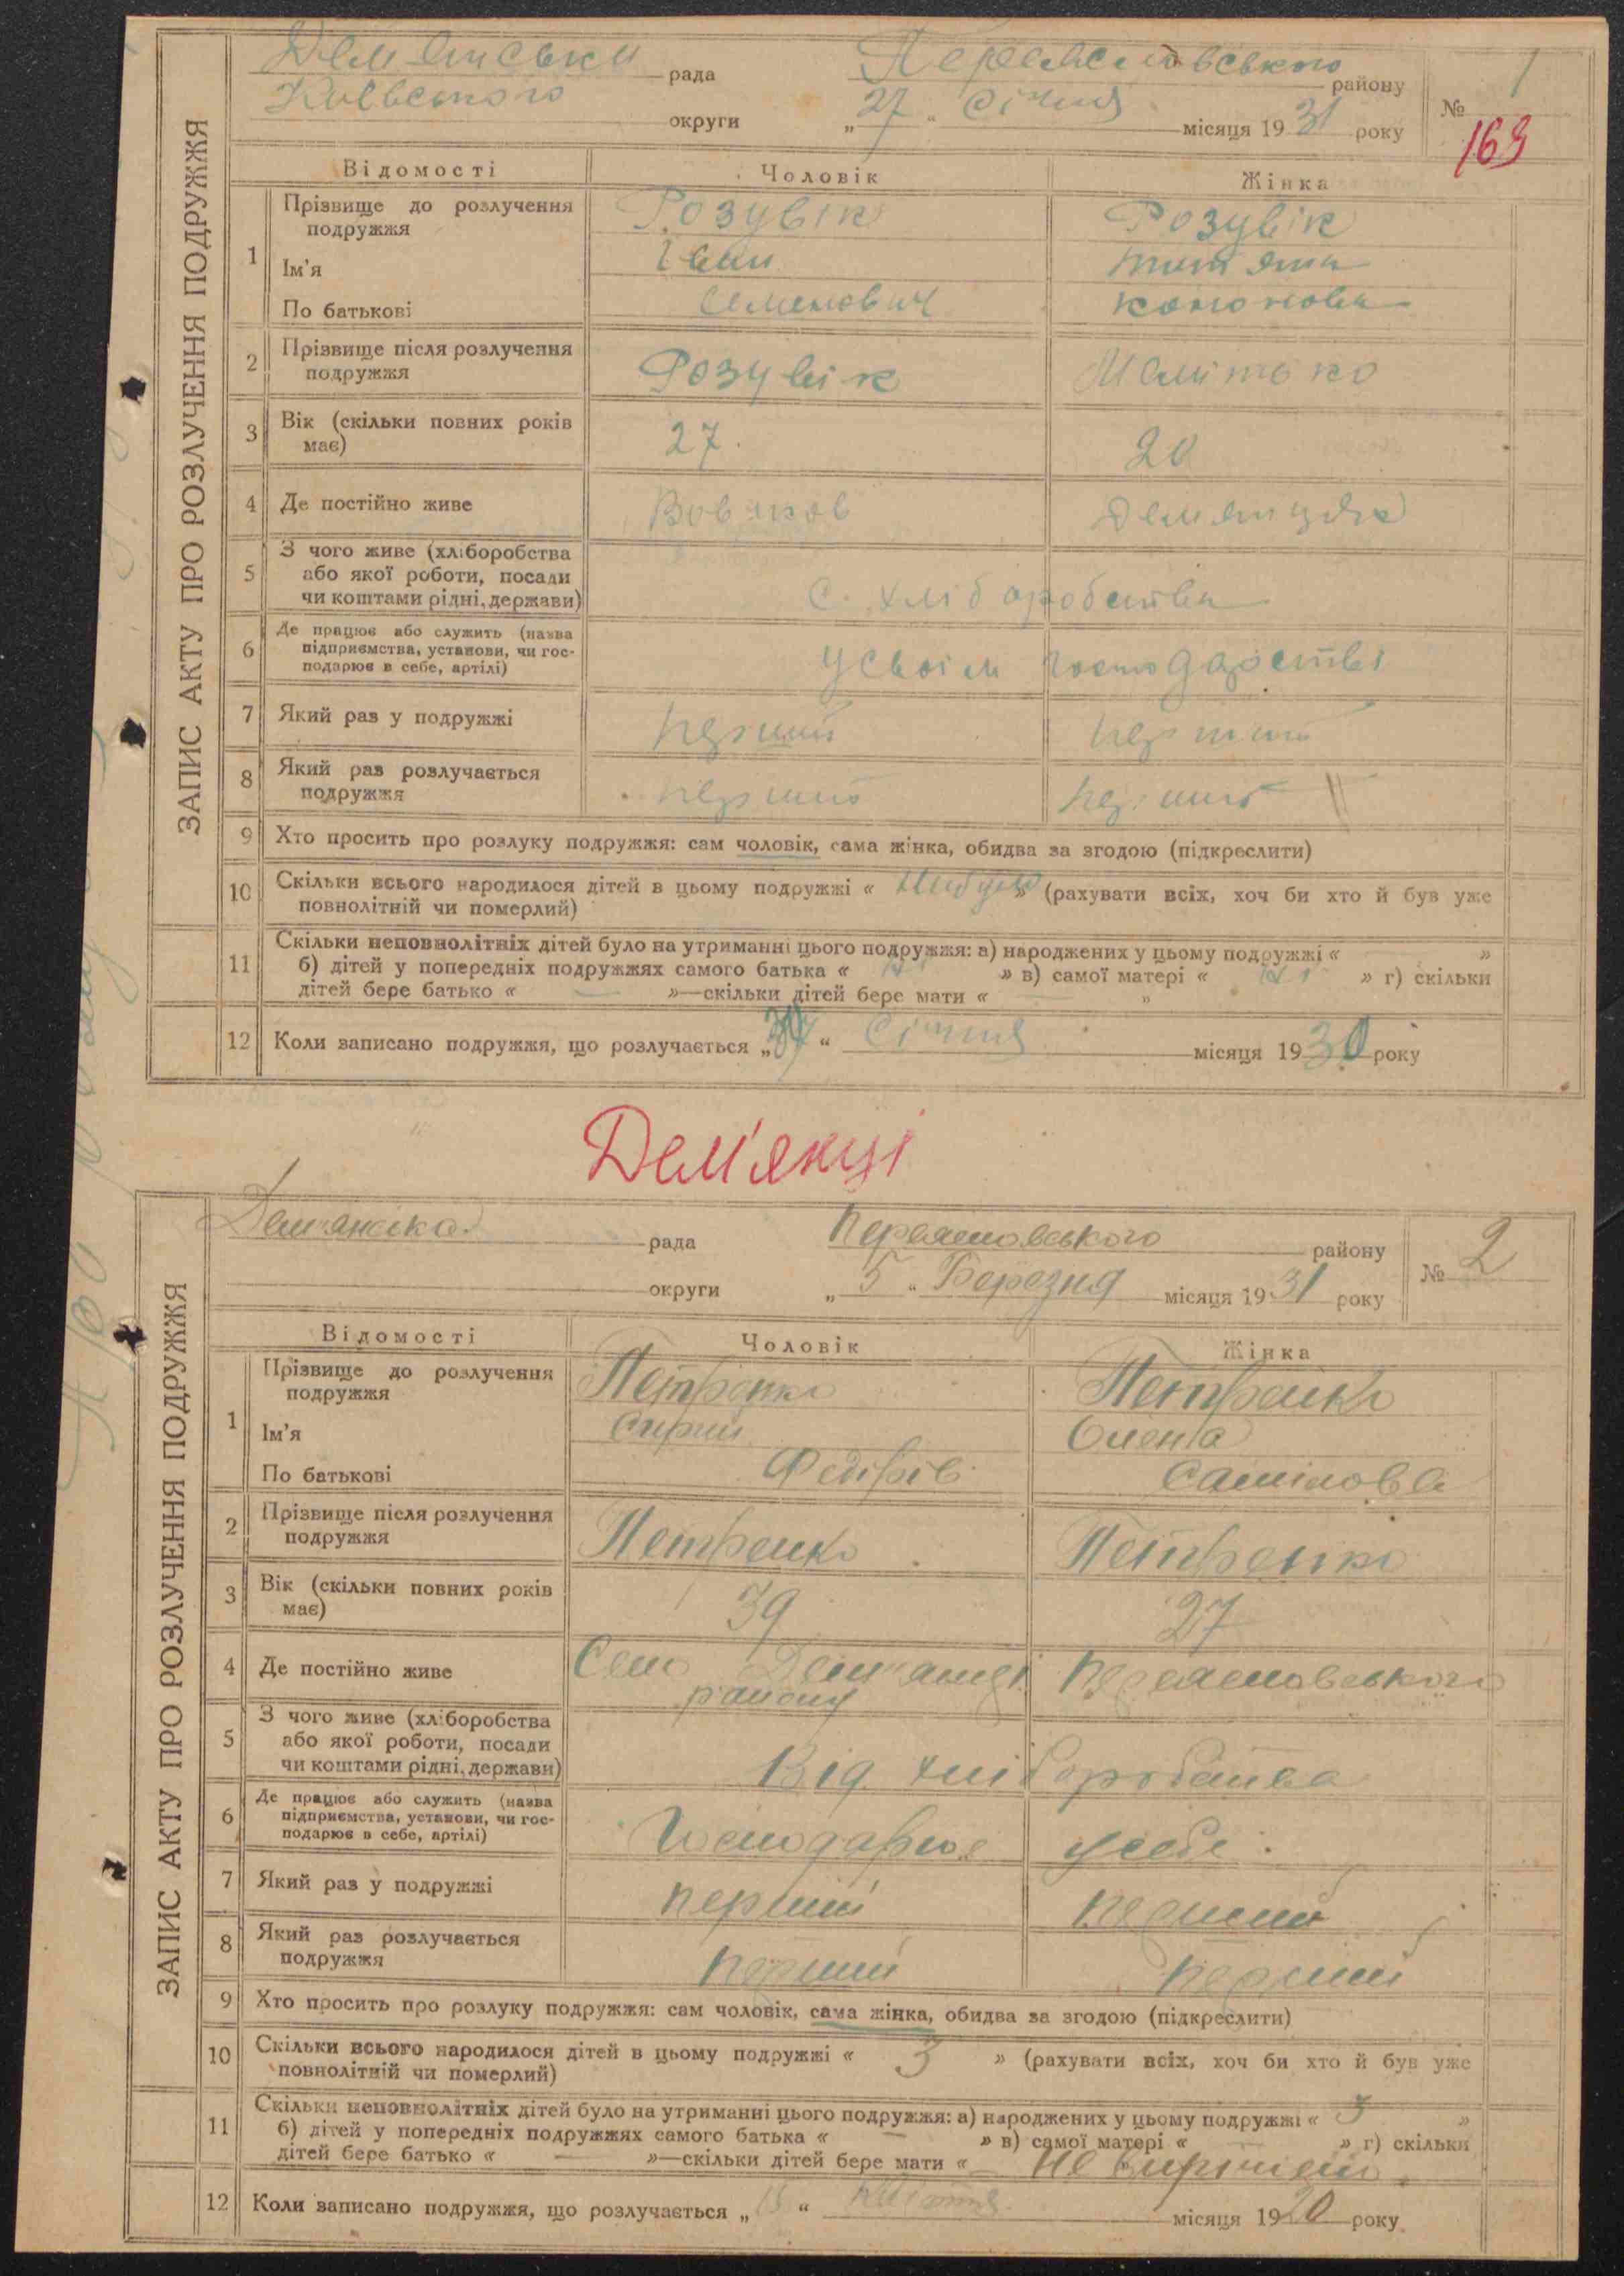 ЗАПИС АКТУ ПРО РОЗЛУЧЕННЯ ПОДРУЖЖЯ
рада Переяславського району № 1
Київського округи „27“ Січня місяця 1931 року 169
Відомості Чоловік Жінка
1 Прізвище до розлучення подружжя Розувік Розувік
Ім'я Іван
По батькові Семенович
2 Прізвище після розлучення подружжя Розувік
3 Вік (скільки повних років має) 27. 20
4 Де постійно живе
5 З чого живе (хліборобства
або якої роботи, посади
чи коштами рідні, держави) с. хліборобства
6 Де працює або служить (назва
підприємства, установи, чи гос-
подарює в себе, артілі) у своїм господарстві
7 Який раз у подружжі перший перший
8 Який раз розлучається подружжя перший перший
9 Хто просить про розлуку подружжя: сам чоловік, сама жінка, обидва за згодою (підкреслити)
10 Скільки всього народилося дітей в цьому подружжі « » (рахувати всіх, хоч би хто й був уже
повнолітній чи померлий)
11 Скільки неповнолітніх дітей було на утриманні цього подружжя: а) народжених у цьому подружжі « »
б) дітей у попередніх подружжях самого батька « » в) самої матері « » г) скільки
дітей бере батько « — »—скільки дітей бере мати « — "
12 Коли записано подружжя, що розлучається „ “ Січня місяця 1930 року
Дем'янці
ЗАПИС АКТУ ПРО РОЗЛУЧЕННЯ ПОДРУЖЖЯ
рада Переяславського району № 2
округи „5“ Березня місяця 1931 року
Відомості Чоловік Жінка
1 Прізвище до розлучення подружжя Петренко Петренко
Ім'я Олена
По батькові
2 Прізвище після розлучення подружжя Петренко Петренко
3 Вік (скільки повних років має) 39 27
4 Де постійно живе Село Демянці Переяславського
району
5 З чого живе (хліборобства
або якої роботи, посади
чи коштами рідні, держави) Від хліборобства
6 Де працює або служить (назва
підприємства, установи, чи гос-
подарює в себе, артілі) Господарює у себе.
7 Який раз у подружжі перший перший
8 Який раз розлучається подружжя перший перший
9 Хто просить про розлуку подружжя: сам чоловік, сама жінка, обидва за згодою (підкреслити)
10 Скільки всього народилося дітей в цьому подружжі « 3 » (рахувати всіх, хоч би хто й був уже
повнолітній чи померлий)
11 Скільки неповнолітніх дітей було на утриманні цього подружжя: а) народжених у цьому подружжі « 3 »
б) дітей у попередніх подружжях самого батька « — » в) самої матері « — » г) скільки
дітей бере батько « — »—скільки дітей бере мати « не
12 Коли записано подружжя, що розлучається „ “ місяця 1920 року